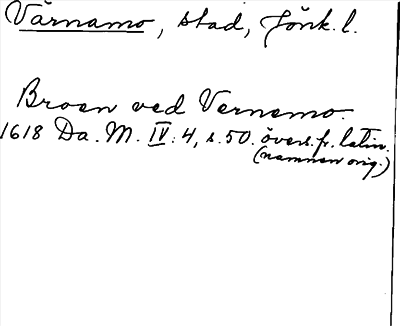 Värnamo, stad, Jönk. l.
Broen ved Vernamo.
1618 Da. M. IV: 4, s. 50. övers. fr. latin.
(namnen orig.)